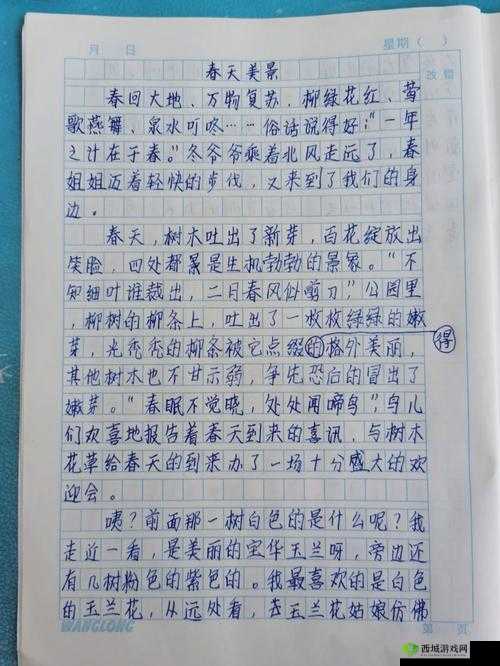 月 日 星期( )
春天美景
春回大地、万物复苏，柳绿花红、莺
歌燕舞、泉水叮咚……俗话说得好:“一年
之计在于春。”冬爷爷乘着北风走远了，春
姐姐迈着轻快的步伐，又来到了我们的身
边。
春天，树木吐出了新芽，百花绽放出
笑脸，四处都是生机勃勃的景象。“不
知细叶谁裁出，二月春风似剪刀”，公园里
，柳树的柳条上，吐出了一枚枚绿绿的嫩
芽，光秃秃的柳条被它点缀的格外美丽，
得
其他树木也不甘示弱，争先恐后的冒出了
嫩芽。“春眠不觉晓，处处闻啼鸟”，鸟儿
们欢喜地报告着春天到来的喜讯，与树木
花草给春天的到来办了一场十分盛大的欢
迎会。
咦？前面那一树白色的是什么呢？我
走近一看，是美丽的宝华玉兰呀，旁边还
有几树粉色的紫色的。我最喜欢的是白色
的玉兰花，从远处看，玉兰花姑娘仿佛
WANGLONG 第 页
西城游戏网